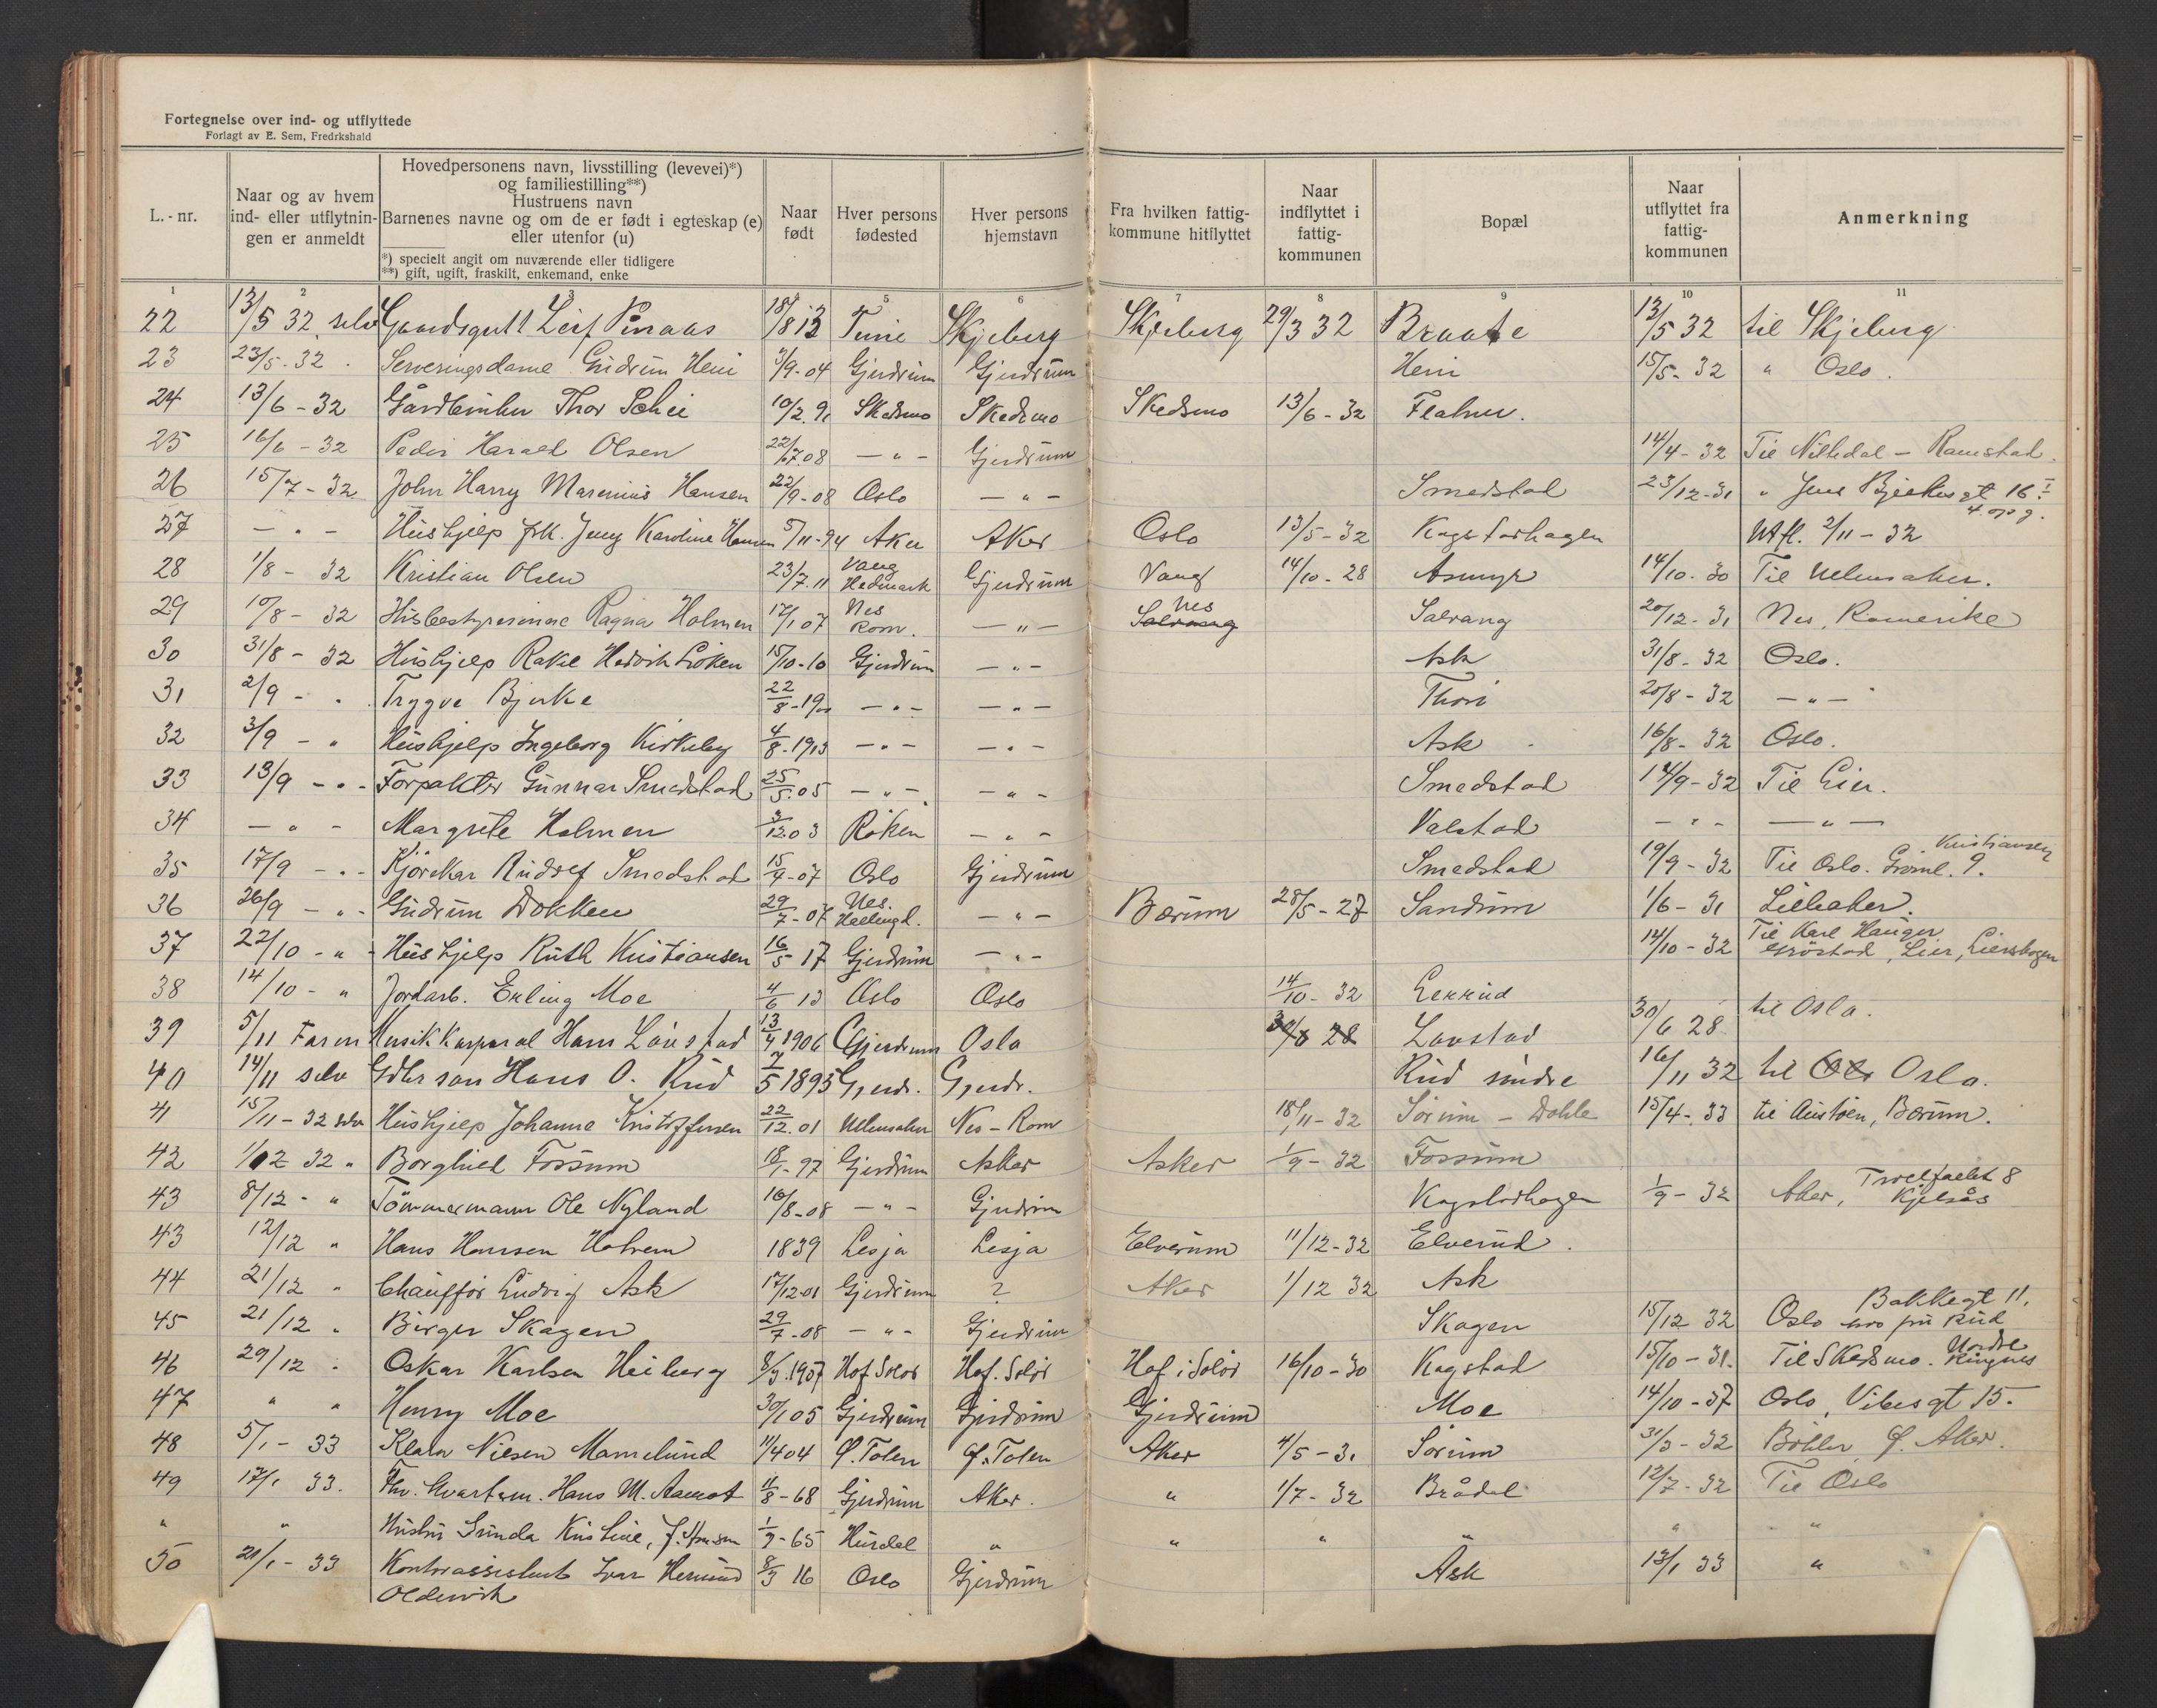 Fortegnelse over ind- og utflyttede
Forlagt av E. Sem, Fredrkshald
L.-nr.
Naar og av hvem ind- eller utflytnin- gen er anmeldt
Hovedpersonens navn, livsstilling (levevei)*) og familiestilling**)
Hustruens navn
Barnenes navne og om de er født i egteskap (e) eller utenfor (u)
*) specielt angit om nuværende eller tidligere
**) gift, ugift, fraskilt, enkemand, enke
Naar født
Hver persons fødested
Hver persons hjemstavn
Fra hvilken fattig- kommune hitflyttet
Naar indflyttet i fattig- kommunen
Bopæl
Naar utflyttet fra fattig- kommunen
Anmerkning
1 2 3 5 6 7 8 9 10 11
22 13/5 32 selv Gaardsgutt Leif 18/8 13 Tune Skjeberg Skjeberg 29/3 32 Braate 13/5 32 til Skjeberg
23 23/5-32 Serveringsdame Gudrun Heni 3/9-04 Gjerdrum Gjerdrum Heni 15/5-32 " Oslo.
24 13/6-32 Gårdbruker Thor Schei 10/2.91 Skedsmo Skedsmo Skedsmo 13/6-32 Flahm.
25 16/6-32 Peder Harald Olsen 22/7.08 -"- Gjerdrum 14/4-32 Til Nittedal - Ramstad.
26 15/7-32 John Harry Marenius Hansen 22/9-08 Oslo -"- Smedstad 23/12-31 " Jens Bjelkes gt 16 I
4. opg.
27 -"- Hushjelp frk. Jenny Karoline Hansen 5/11-94 Aker Aker Oslo 13/5-32 Kogstadhagen Utfl. 2/11-32
28 1/8-32 Kristian Olsen 23/7.11 Vang Hedmark Gjerdrum Vang 14/10-28 Asmyr 14/10-30 Til Ullensaker.
29 10/8-32 Husbestyrerinne Ragna Holmen 17/1 07 Nes Rom. -"- Nes Salvang Salvang 20/12-31 Nes, Romerike
30 31/8-32 Hushjelp Rakel Hedvik Løken 15/10-10 Gjerdrum -"- Ask 31/8-32 Oslo.
31 2/9-" Trygve Bjerke 22/8-19 -"- -"- Thori 20/8-32 -"-
32 3/9-" Hushjelp Ingeborg Kirkeby 4/8-1913 -"- -"- Ask 16/8-32 Oslo.
33 13/9-"- Forpakter Gunnar Smedstad 25/5.05 -"- -"- Smedstad 14/9-32 Til Lier.
34 -"- Margrete Holmen 3/12.03 Røken -"- Valstad -"- -"-
35 17/9-"- Kjørekar Rudolf Smedstad 15/4-07 Oslo Gjerdrum Smedstad 19/9-32 Til Oslo. Grønl. 9. Kristiansen
36 26/9-"- Gudrun Dokken 29/7-07 Nes. Hallingd. -"- Bærum 28/5-27 Sandum 1/6-31 Lilleaker.
37 22/10-" Hushjelp Ruth Kristiansen 16/5 17 Gjerdrum -"- 14/10-32 Til Karl Hauger
Grøstad, Lier, Lierskogen
38 14/10-" Jordarb. Erling Moe 4/6 13 Oslo Oslo 14/10-32 Lekrud
39 5/11 Faren Musikkorporal Hans Lønstad 13/4 1906 Gjerdrum Oslo 30/6 28 Lønstad 30/6 28 til Oslo.
40 14/11 selv Gdbr søn Hans O. Rud 7/5 1895 Gjerdr. Gjerdr. Rud søndre 16/11 32 til Oslo.
41 15/11-32 selv Hushjelp Johanne Kristoffersen 22/12.01 Ullensaker Nes-Rom 18/11-32 Sørum-Dahle 15/4-33 til Austøen, Bærum.
42 1/12 32 " Borghild Fossum 18/1-97 Gjerdrum Asker Asker 1/9-32 Fossum
43 8/12-" Tømmermann Ole Nyland 16/8-08 -"- Gjerdrum Kogstadhagen 1/9-32 Aker, Trollfaldet 8 Kjelsås
43 12/12 " Hans Hansen Holrem 1839 Lesja Lesja Elverum 11/12-32 Elverud.
44 21/12 " Chauffør Ludvig Ask 17/12-01 Gjerdrum ? Aker 1/12 32 Ask
45 21/12 " Birger Skagen 29/7-08 -"- Gjerdrum Skagen 15/12 32 Oslo Bakkegt 11. hos fru Rud
46 29/12 " Oskar Karlsen Heiberg 8/3.1907 Hof Solør Hof. Solør Hof i Solør 16/10-30 Kogstad 15/10-31. Til Skedsmo. Nordre Ringnes
47 " " Henry Moe 30/1 05 Gjerdrum Gjerdrum Gjerdrum Moe 14/10-37 Oslo, Vibesgt 15.
48 5/1-33 Klara Nilsen Mamelund 11/4 04 Ø. Toten Ø. Toten Aker 4/5-31 Sørum 31/3-32 Bøhler Ø. Aker.
49 17/1 33. Fhv. Hans M. Aamot 11/8-68 Gjerdrum Aker. " 1/7-32 Brådal 12/7-32 Til Oslo
" " Hustru Gunda Kristine, f. Hansen 1/9-65 Hurdal " " " " " "
50 21/1-33 Kontorassistent Ivar Hermund 8/3 16 Oslo Gjerdrum Ask 13/1 33 "
Oldervik